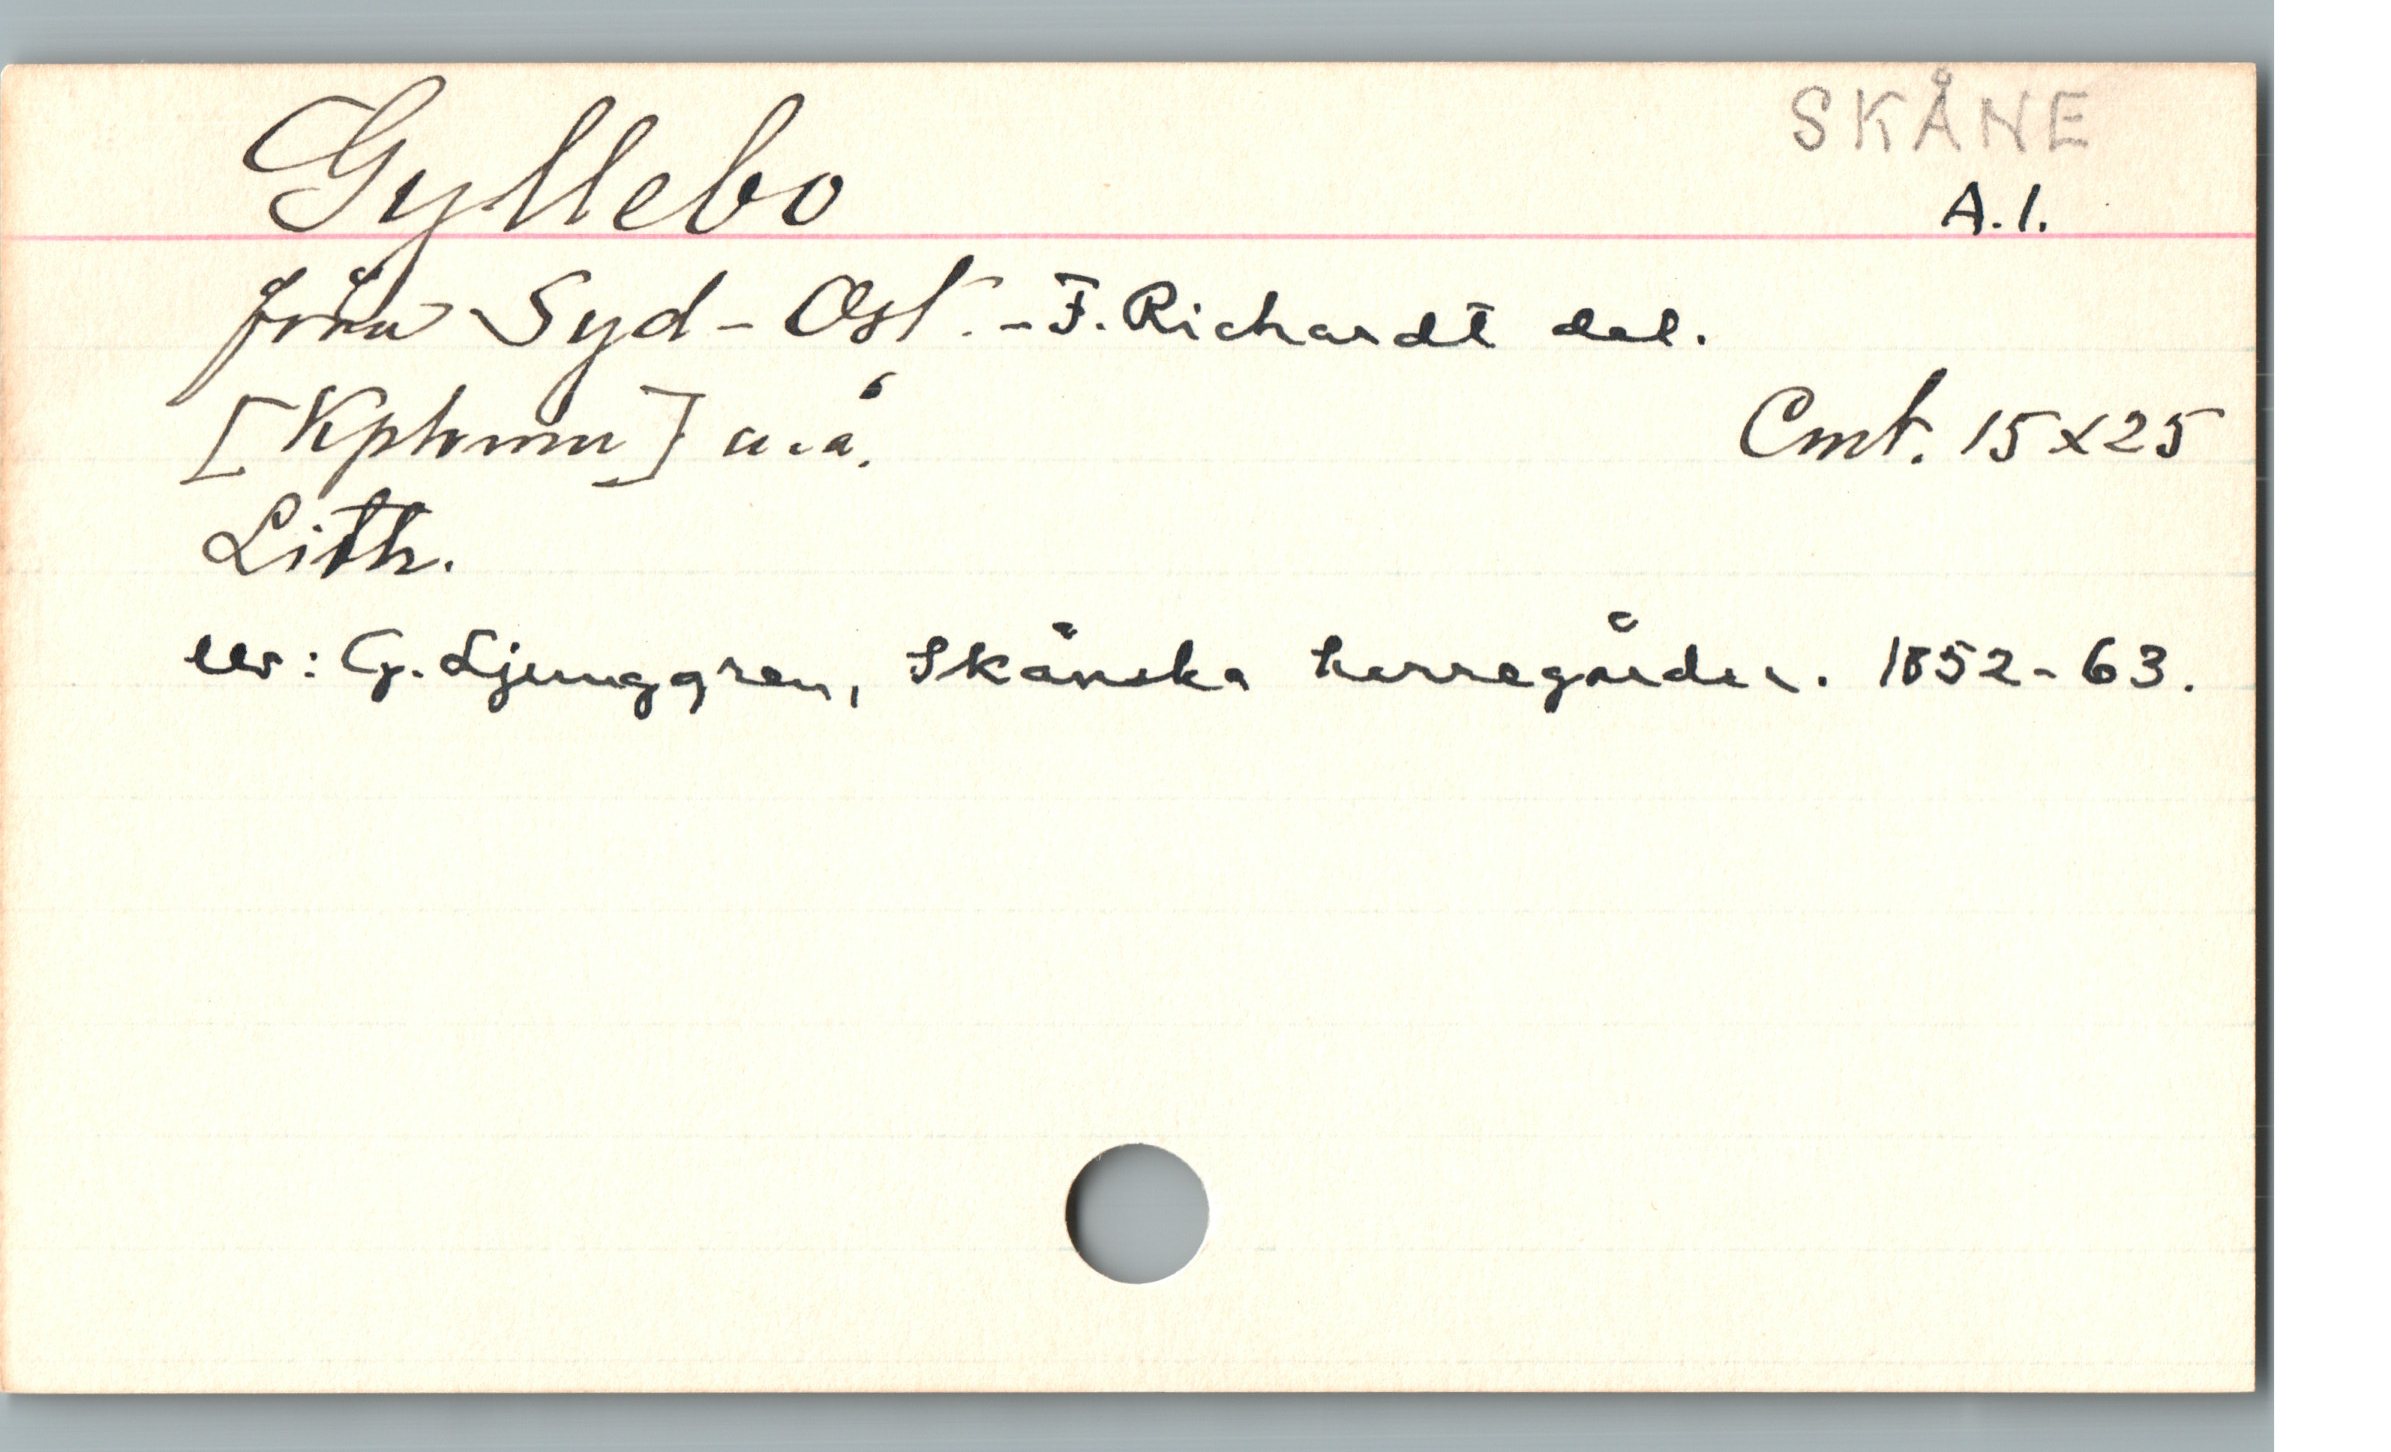 SKÅNE
Gyllebo A.1.
från Syd-Ost. - F. Richardt del.
[Kphmn] u.å. Cmt. 15x25
Lith.
Ur: G. Ljunggren, Skånska herregårdar. 1852-63.